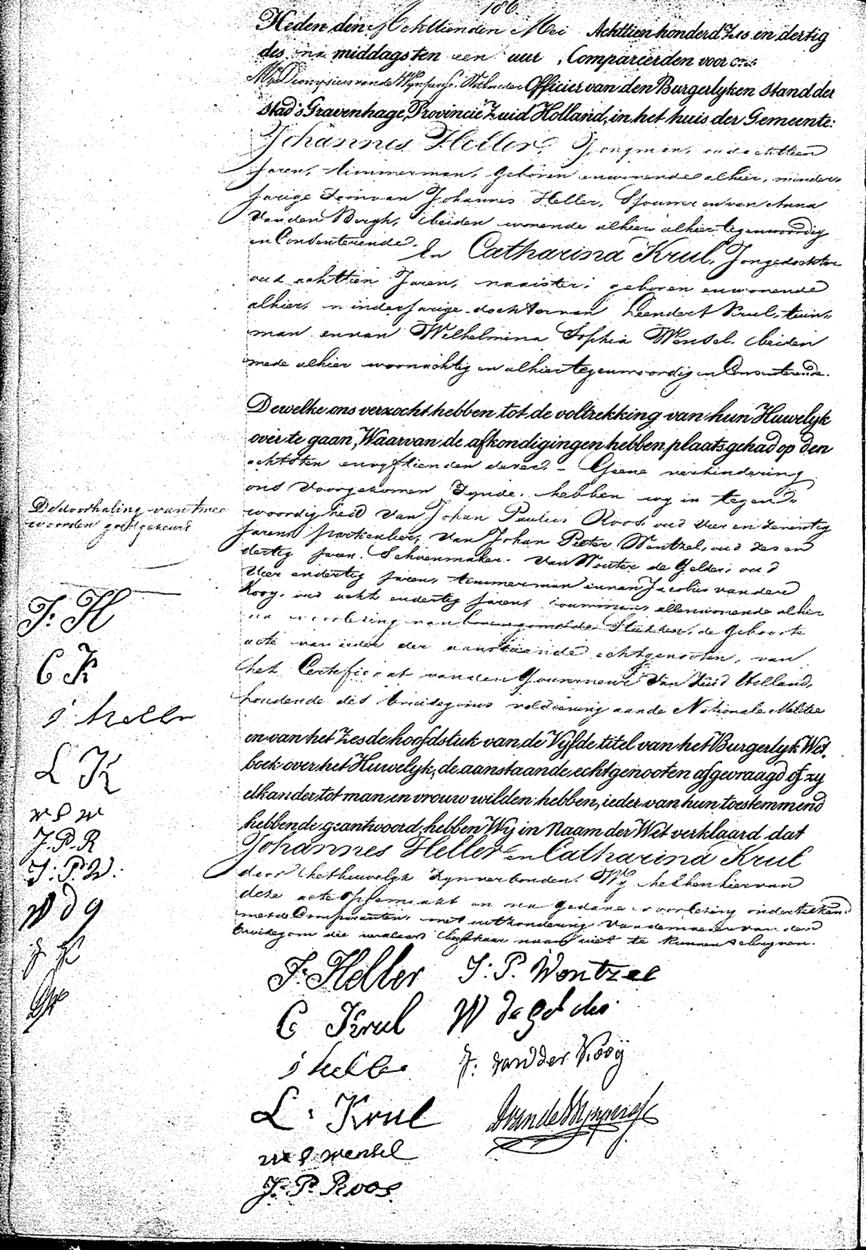 186
Heden den Achttienden Mei Achttienhonderd Zes en dertig
des na middags ten een uur, Compareerden voor ons
Officier van den Burgerlyken stand der
stad 's Gravenhage, Provincie Zuid Holland, in het huis der Gemeente:
Johannes Heller, Jongman, oud achttien
Jaren, timmerman, geboren en wonende alhier, minder-
jarige Zoon van Johannes Heller, en van Anna
van den Bergh, beiden wonende alhier alhier tegenwoordig
en Consenterende. En Catharina Krul, Jongedochter
oud achttien Jaren, naaister, geboren en wonende
alhier, minderjarige dochter van Leendert Krul, tuin-
man en van Wilhelmina Sophia Wensel, beiden
mede alhier woonachtig en alhier tegenwoordig en Consenterende.
Dewelke ons verzocht hebben tot de voltrekking van hun Huwelyk
over te gaan, Waarvan de afkondigingen hebben plaats gehad op den
achtsten en vyftienden dezer. Geene verhindering
ons voorgekomen zynde, hebben wy in tegen-
woordigheid van Johan Paulus Roos oud vier en zeventig
Jaren, van Johan Pieter Wentzel, oud zes en
dertig Jaren, Schoenmaker, van Wouter de Gelder, oud
vier en dertig Jaren, timmerman en van Jacobus van der
Kooy, oud acht en dertig Jaren, allen wonende alhier
na voorlezing van Stukken, de Geboorte
acte van ieder der aanstaande echtgenooten, van
het Certificaat van den Gouverneur van Zuid Holland,
houdende des bruidegoms voldoening aan de Nationale Militie
en van het Zesde hoofdstuk van de Vyfde titel van het Burgerlyk Wet-
boek over het Huwelyk, de aanstaande echtgenooten afgevraagd of zy
elkander tot man en vrouw wilden hebben, ieder van hun toestemmend
hebbende geantwoord, hebben Wy in Naam der Wet verklaard dat
Johannes Heller en Catharina Krul
door het huwelyk zyn verbonden. Wy hebben hiervan
deze acte opgemaakt en na gedane voorlezing onderteekend
met de Comparanten, met uitzondering van de moeder van den
bruidegom die verklaarde naam niet te kunnen schryven.
De doorhaling van twee
woorden goedgekeurd
J: H
C K
j heller
L K
w s w
J. P. R
J: P. W.
W d g
J. Heller
J: P. Wentzel
C Krul
W de Gelder
j heller
J: van der Kooy
L: Krul
w s wensel
J. P. Roos